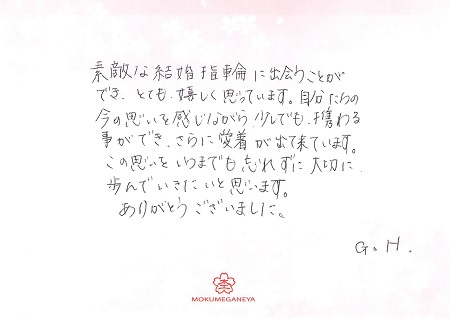 素敵な結婚指輪に出会うことが
でき、とても嬉しく思っています。自分たちの
今の思いを感じながら少しでも、携わる
事ができ、さらに愛着が出て来ています。
この思いをいつまでも忘れずに大切に
歩んでいきたいと思います。
ありがとうございました。
G.H.
MOKUMEGANEYA